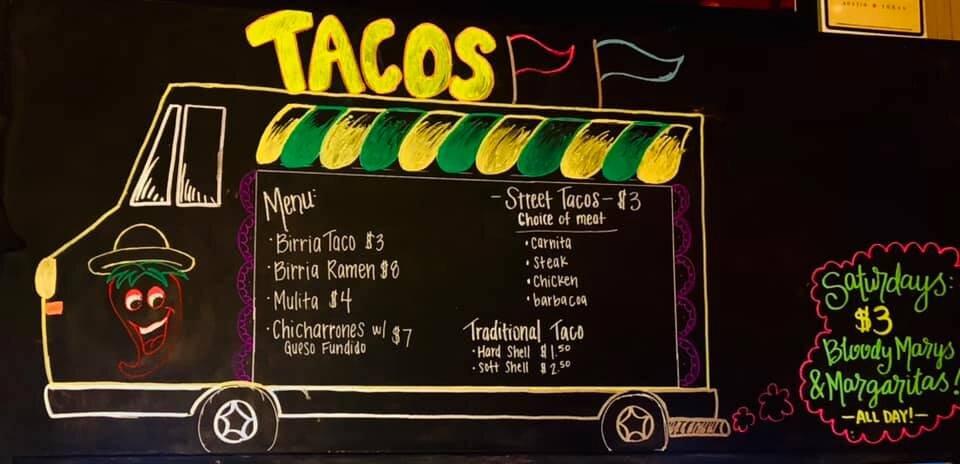 TACOS
Menu:
· Birria Taco $3
· Birria Ramen $8
· Mulita $4
· Chicharrones w/ $7
Queso Fundido
- Street Tacos - $3
Choice of meat
· Carnita
· Steak
· Chicken
· barbacoa
Traditional Taco
· Hard Shell $1.50
· Soft Shell $2.50
Saturdays:
$3
Bloody Marys
& Margaritas!
- ALL DAY! -